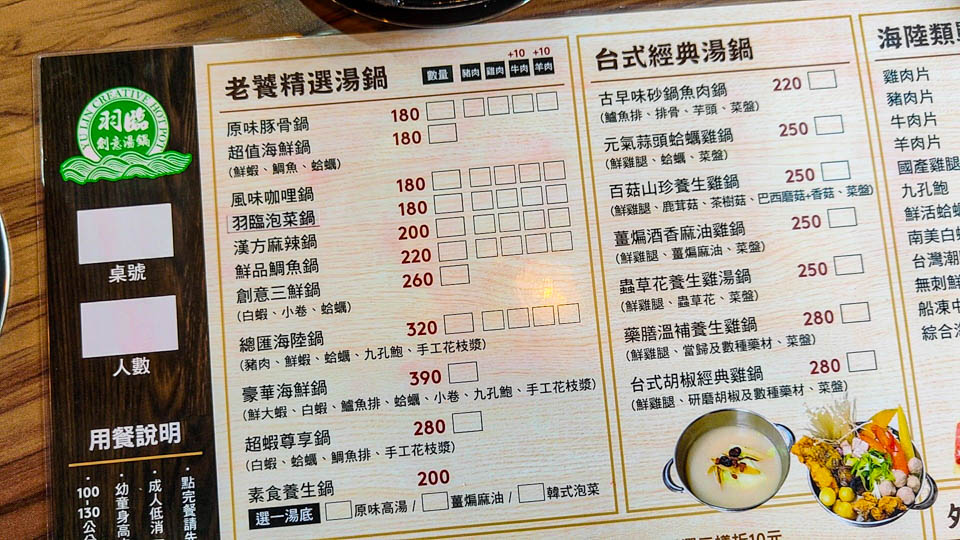 YULIN CREATIVE HOT POT
羽臨
創意湯鍋
桌號
人數
用餐說明
・點完餐請先
・成人低消
・幼童身高
・100-130公
老饕精選湯鍋
+10 +10
數量 豬肉 雞肉 牛肉 羊肉
原味豚骨鍋 180
超值海鮮鍋 180
(鮮蝦、鯛魚、蛤蠣)
風味咖哩鍋 180
羽臨泡菜鍋 180
漢方麻辣鍋 200
鮮品鯛魚鍋 220
創意三鮮鍋 260
(白蝦、小卷、蛤蠣)
總匯海陸鍋 320
(豬肉、鮮蝦、蛤蠣、九孔鮑、手工花枝漿)
豪華海鮮鍋 390
(鮮大蝦、白蝦、鱸魚排、蛤蠣、小卷、九孔鮑、手工花枝漿)
超蝦尊享鍋 280
(白蝦、蛤蠣、鯛魚排、手工花枝漿)
素食養生鍋 200
選一湯底 原味高湯 / 薑煸麻油 / 韓式泡菜
台式經典湯鍋
古早味砂鍋魚肉鍋 220
(鱸魚排、排骨、芋頭、菜盤)
元氣蒜頭蛤蠣雞鍋 250
(鮮雞腿、蛤蠣、菜盤)
百菇山珍養生雞鍋 250
(鮮雞腿、鹿茸菇、茶樹菇、巴西蘑菇+香菇、菜盤)
薑煸酒香麻油雞鍋 250
(鮮雞腿、薑煸麻油、菜盤)
蟲草花養生雞湯鍋 250
(鮮雞腿、蟲草花、菜盤)
藥膳溫補養生雞鍋 280
(鮮雞腿、當歸及數種藥材、菜盤)
台式胡椒經典雞鍋 280
(鮮雞腿、研磨胡椒及數種藥材、菜盤)
海陸類
雞肉片
豬肉片
牛肉片
羊肉片
國產雞腿
九孔鮑
鮮活蛤
南美白
台灣潮
無刺鮮
船凍中
綜合海
折10元